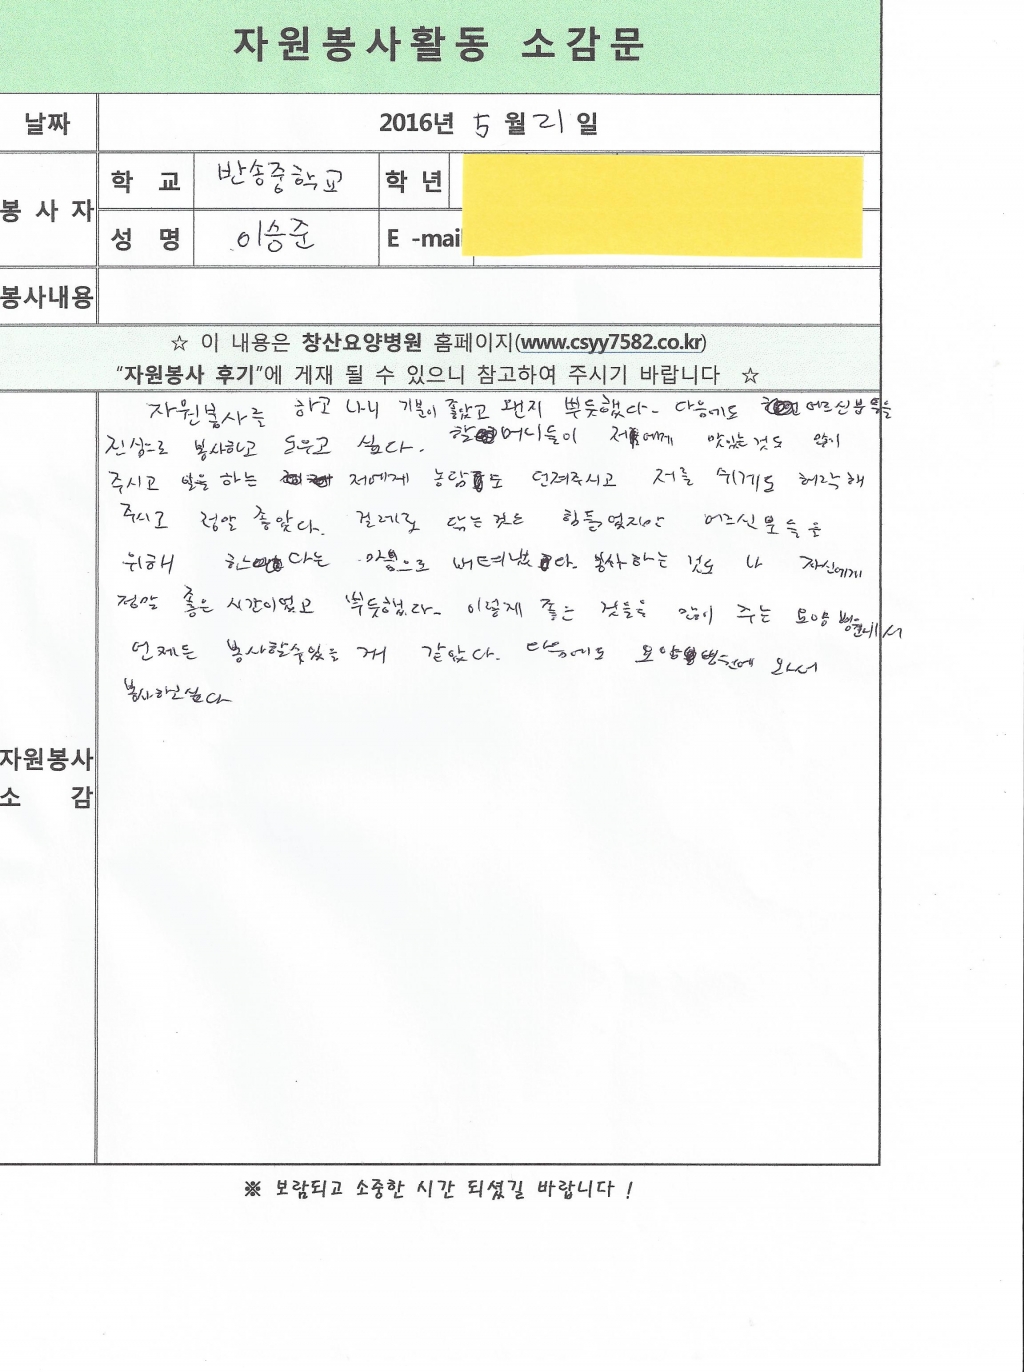 자원봉사활동 소감문
날짜 2016년 5월 21일
봉사자 학교 반송중학교 학년
성명 이승준 E-mail
봉사내용
☆ 이 내용은 창산요양병원 홈페이지(www.csyy7582.co.kr)
“자원봉사 후기”에 게재 될 수 있으니 참고하여 주시기 바랍니다 ☆
자원봉사를 하고 나니 기분이 좋았고 왠지 뿌듯했다. 다음에도 어르신분들을
진심으로 봉사하고 도우고 싶다. 할머니들이 저에게 맛있는 것도 많이
주시고 일을 하는 저에게 농담도 던져주시고 저를 쉬게도 허락해
주시고 정말 좋았다. 걸레로 닦는 것은 힘들었지만 어르신분들을
위해 한다는 마음으로 버텨냈다. 봉사하는 것도 나 자신에게
정말 좋은 시간이었고 뿌듯했다. 이렇게 좋은 것들을 많이 주는 요양병원에서
언제든 봉사할수있을 거 같았다. 다음에도 요양병원에 와서
봉사하고싶다
자원봉사
소 감
※ 보람되고 소중한 시간 되셨길 바랍니다 !